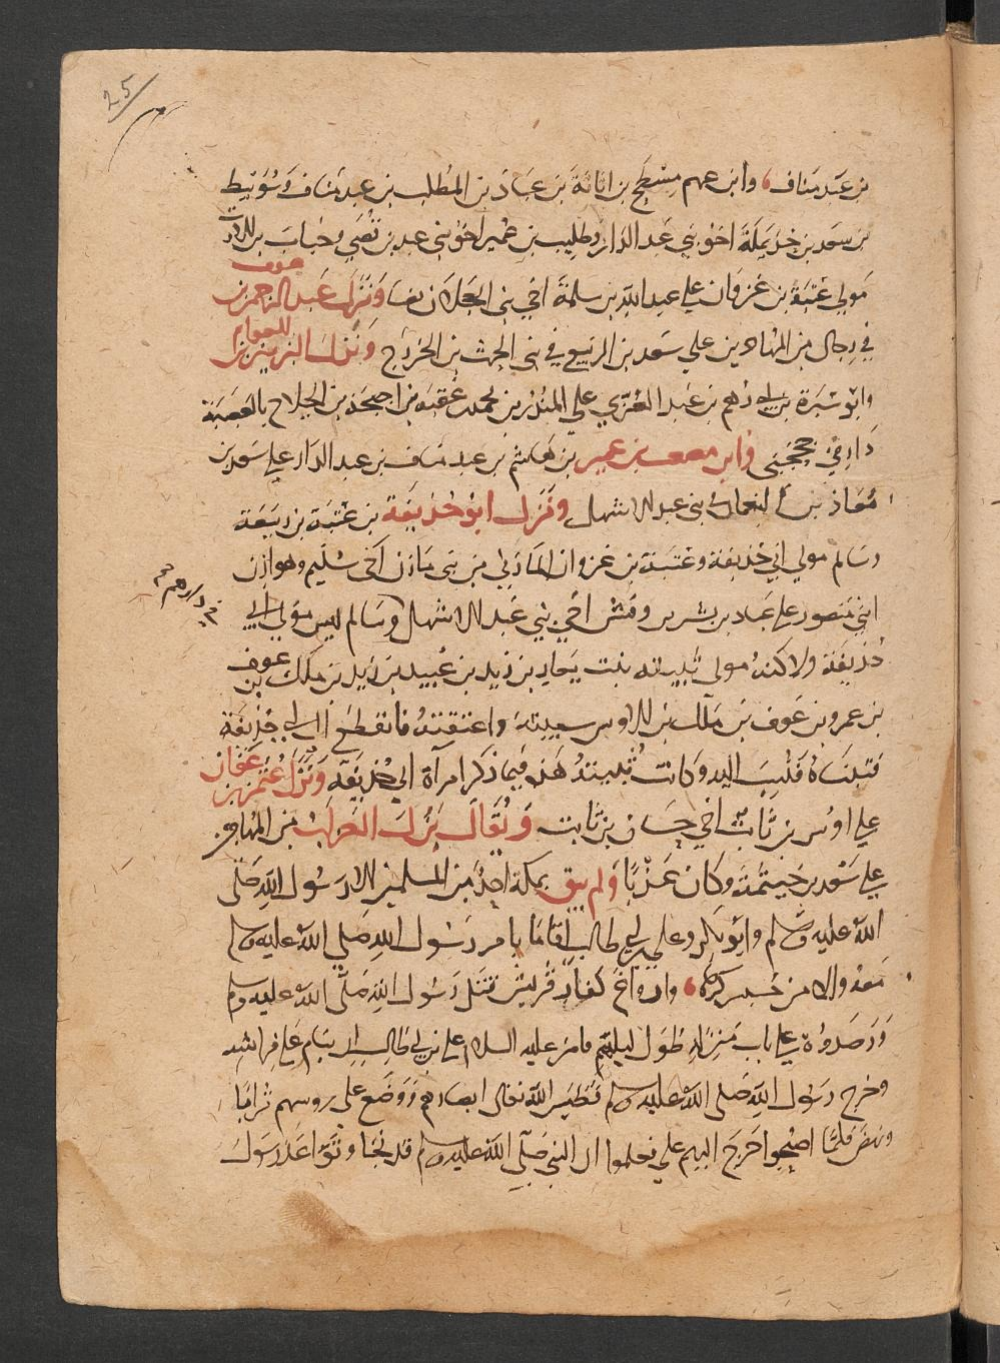 25
بن عبد مناف، وابن عمهم مسطح بن اثاثة بن عباد بن المطلب بن عبد مناف وسويبط
بن سعد بن خريملة اخو بني عبد الدار وطليب بن عمير اخو بني عبد بن قصي وخباب بن الارت
مولى عتبة بن غزوان على عبد الله بن سلمة اخي بني العجلان بقبا ونزل عبد الرحمن بن
عوف
في رجال من المهاجرين على سعد بن الربيع في بني الحرث بن الخزرج ونزل الزبير بن
العوام
وابو سبرة بن ابي رهم بن عبد العزي على المنذر بن محمد بن عقبة بن احيحة بن الجلاح بالعصبة
دار بني جحجبى وابن مصعب بن عمير بن هاشم بن عبد مناف بن عبد الدار على سعد بن
معاذ بن النعمان بني عبد الاشهل ونزل ابو حذيفة بن عتبة بن ربيعة
وسالم مولى ابي حذيفة وعتبة بن غزوان المازني من بني مازن اخي سليم وهوازن
ابني منصور على عباد بن بشر بن وقش اخي بني عبد الاشهل وسالم ليس مولى ابي
في دارهم
حذيفة ولاكنه مولى ثبيته بنت يعار بن زيد بن عبيد بن زيد بن ملك بن عوف
بن عمرو بن عوف بن ملك بن الاوس سيبته واعتقته فانقطع الى ابي حذيفة
فتبناه فنسب اليه وكانت ثبيته هذه فيما ذكر امرآة ابي حذيفة ونزل عثمن بن عفان
على اوس بن ثابت اخي حسان بن ثابت ويقال نزل العزاب من المهاجرين
على سعد بن خيثمة وكان عزبا ولم يبق بمكة احد من المسلمين الا رسول الله صلى
الله عليه وسلم وابو بكر وعلي بن ابي طالب اقاما بامر رسول الله صلى الله عليه وسلم
معه والا من حبس كرها، واراغ كفار قريش قتل رسول الله صلى الله عليه وسلم
ورصدوه على باب منزله طول ليلتهم فامر عليه السلام علي بن ابي طالب ان ينام على فراشه
وخرج رسول الله صلى الله عليه وسلم فطمس الله تعالى ابصارهم ووضع على روسهم ترابا
ونهض فلما اصبحوا خرج اليهم علي فعلموا ان النبي صلى الله عليه وسلم قد نجا وتواعد رسول